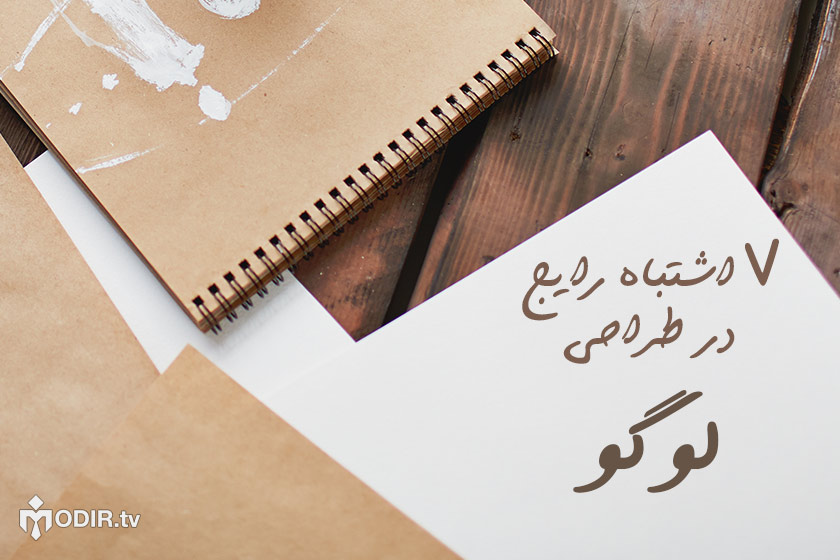 ۷ اشتباه رایج
در طراحی
لوگو
MODIR.tv